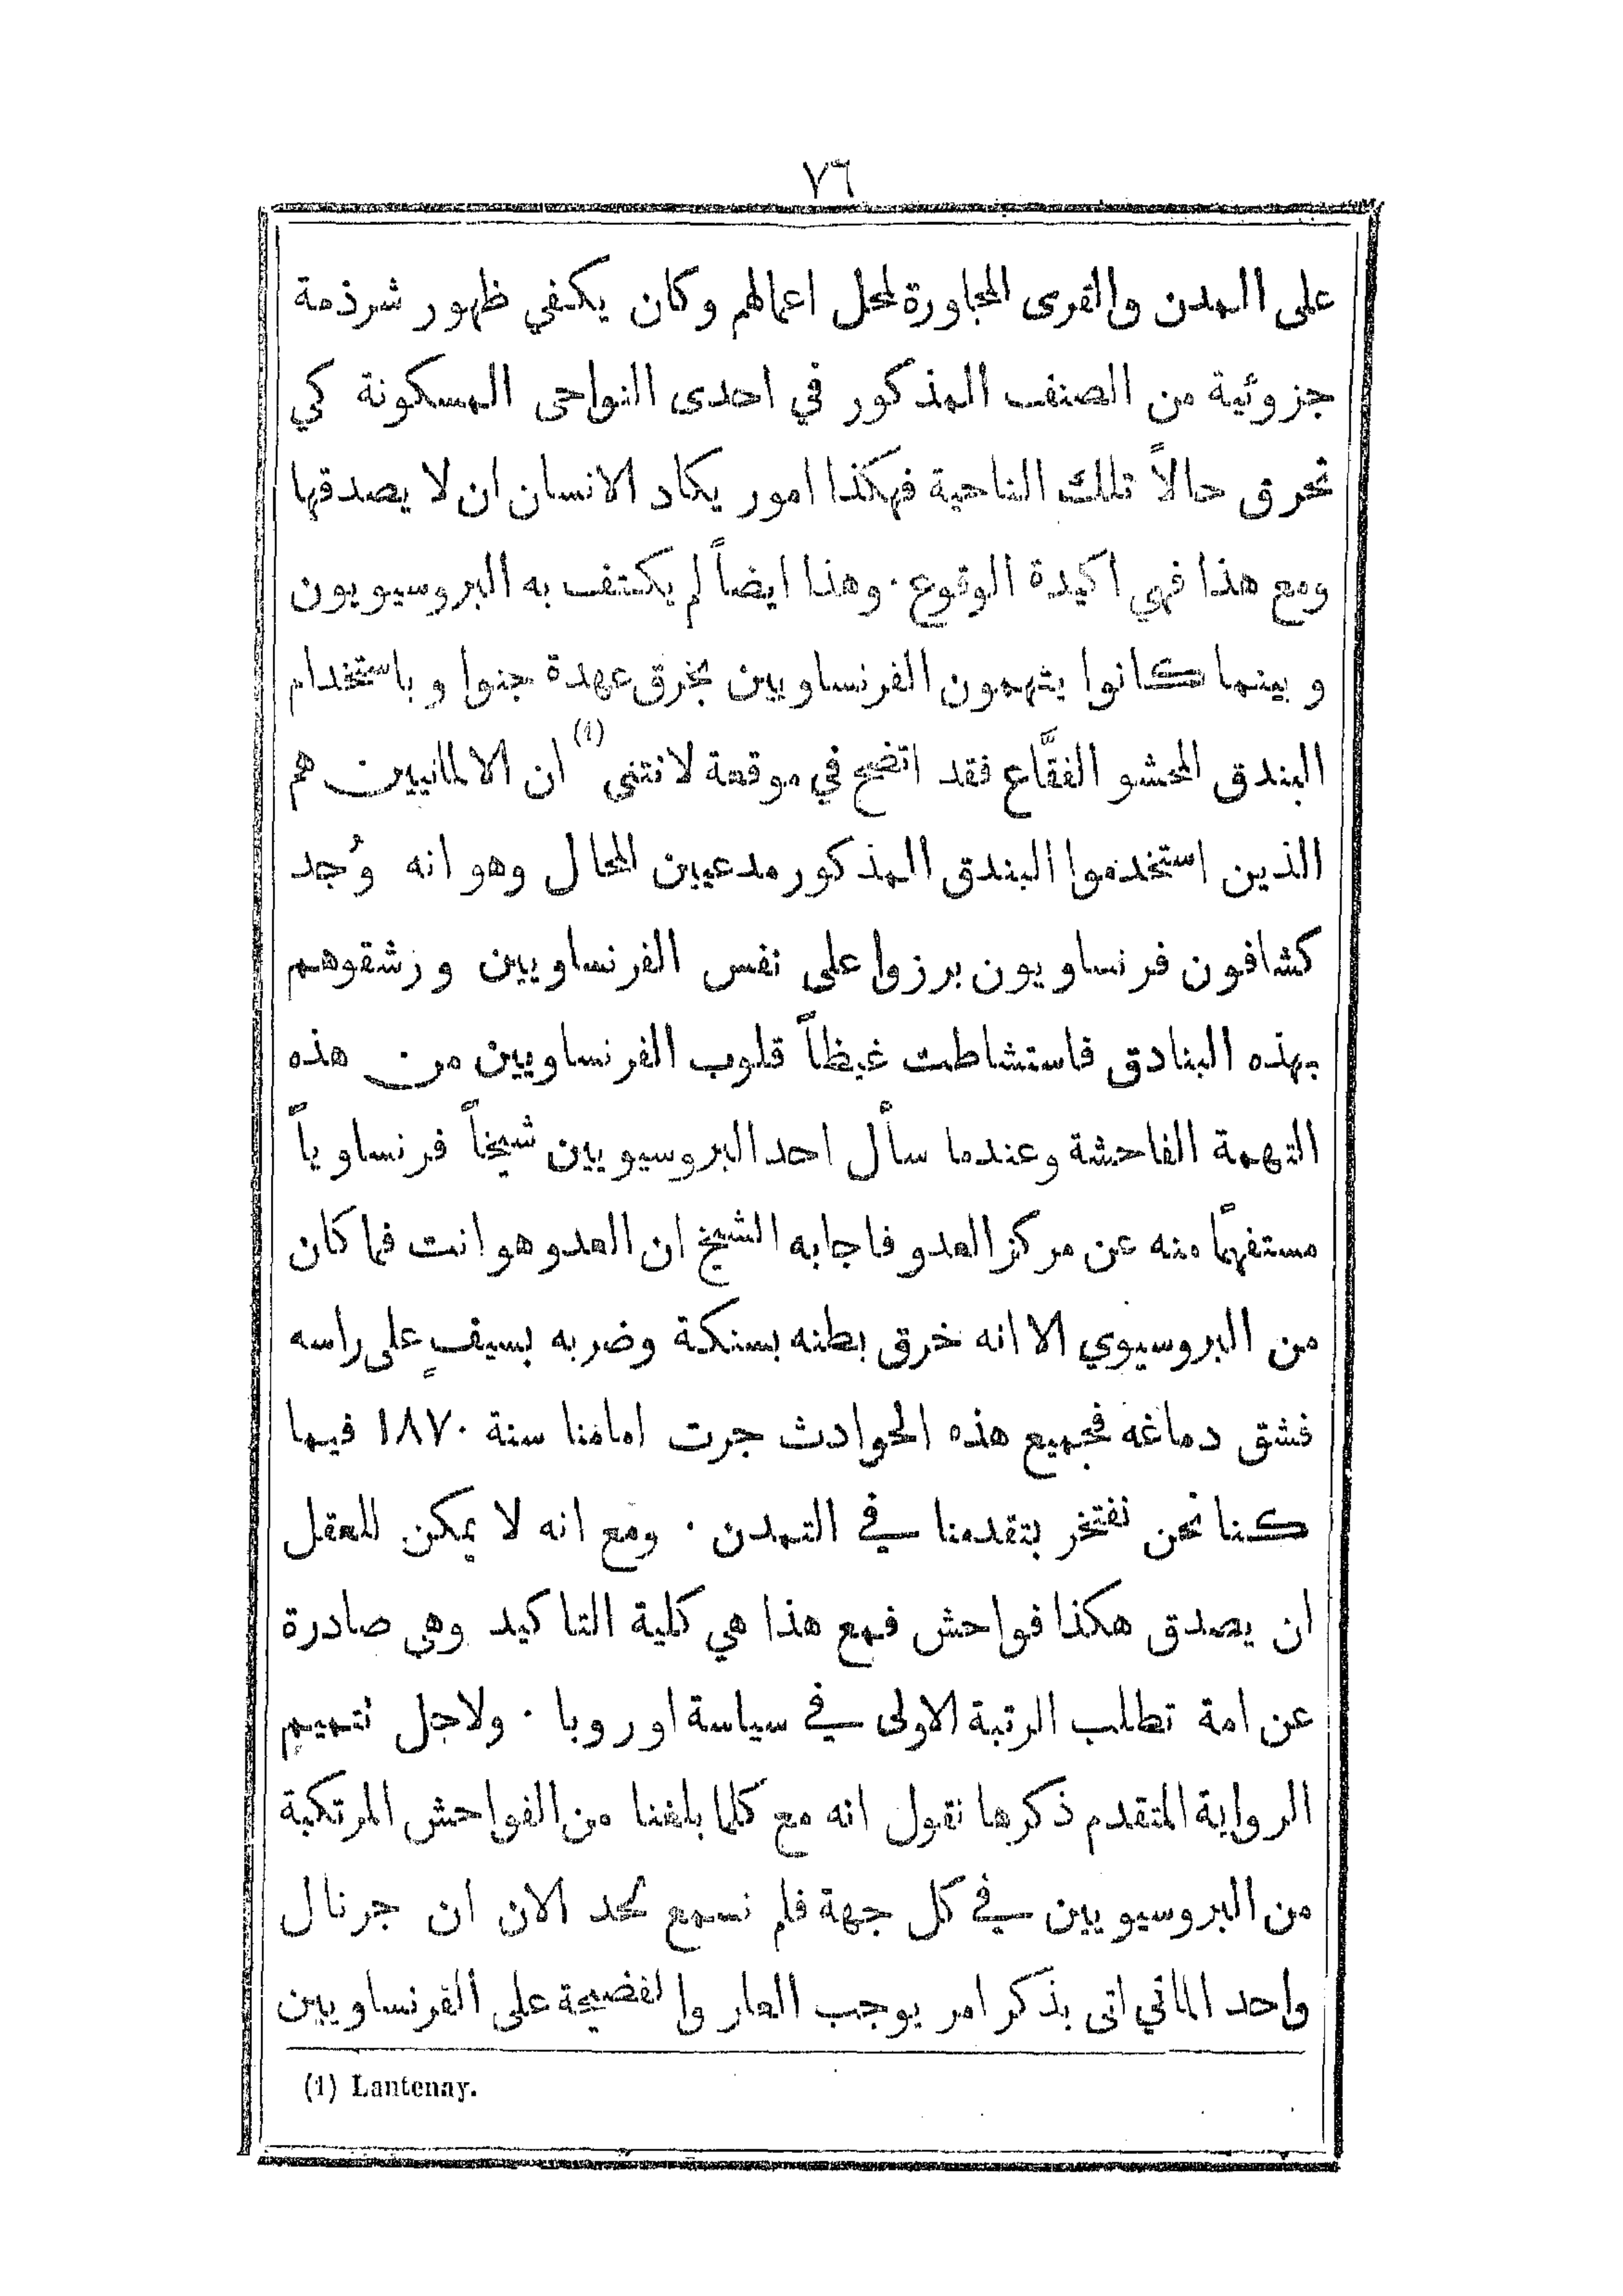 ٧٦
على المدن والقرى المجاورة لمحل اعمالهم وكان يكفي ظهور شرذمة
جزوئية من الصنف المذكور في احدى النواحى المسكونة كي
تحرق حالاً تلك الناحية فهكذا امور يكاد الانسان ان لا يصدقها
ومع هذا فهي اكيدة الوقوع · وهذا ايضاً لم يكتف به البروسيويون
وبينما كانوا يتهمون الفرنساويين بخرق عهدة جنوا وباستخدام
البندق المحشو الفقَّاع فقد اتضح في موقعة لانتنى (1) ان الالمانيين هم
الذين استخدموا البندق المذكور مدعيين المحال وهو انه وُجد
كشافون فرنساويون برزوا على نفس الفرنساويين ورشقوهم
بهذه البنادق فاستشاطت غيظاً قلوب الفرنساويين من هذه
التهمة الفاحشة وعندما سأل احد البروسيويين شيخاً فرنساوياً
مستفهمًا منه عن مركز العدو فاجابه الشيخ ان العدو هو انت فما كان
من البروسيوي الا انه خرق بطنه بسنكة وضربه بسيفٍ على راسه
فشق دماغه فجميع هذه الحوادث جرت امامنا سنة ١٨٧٠ فيما
كنا نحن نفتخر بتقدمنا في التمدن · ومع انه لا يمكن للعقل
ان يصدق هكذا فواحش فمع هذا هي كلية التاكيد وهى صادرة
عن امة تطلب الرتبة الاولى في سياسة اوروبا · ولاجل تتميم
الرواية المتقدم ذكرها نقول انه مع كلما بلغنا من الفواحش المرتكبة
من البروسيويين في كل جهة فلم نسمع لحد الان ان جرنال
واحد الماني اتى بذكر امر يوجب العار والفضيحة على الفرنساويين
(1) Lantenay.